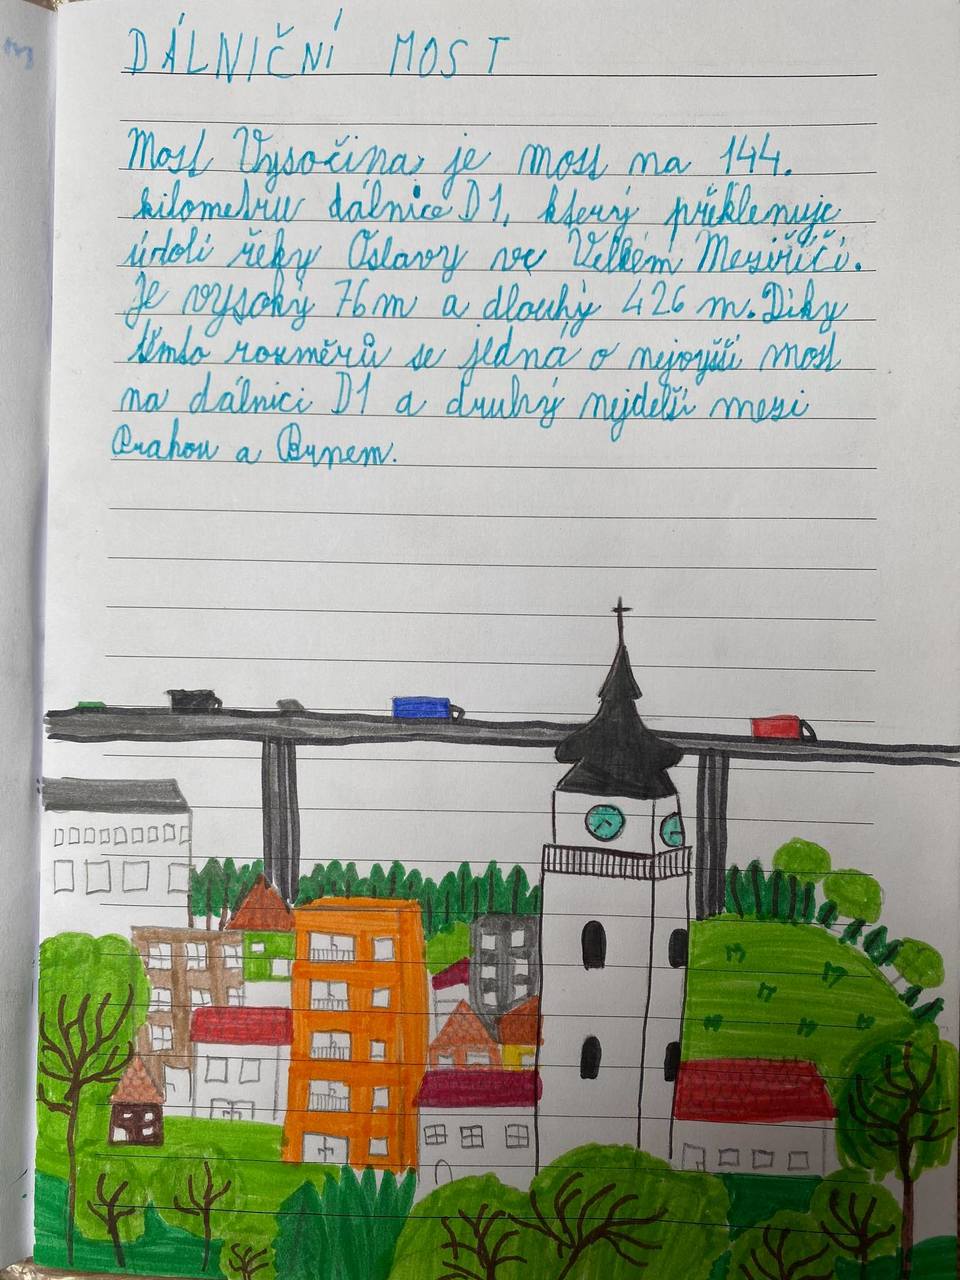 DÁLNIČNÍ MOST
Most Vysočina je most na 144.
kilometru dálnice D1, který překlenuje
údolí řeky Oslavy ve Velkém Meziříčí.
Je vysoký 76 m a dlouhý 426 m. Díky
těmto rozměrů se jedná o nejvyšší most
na dálnici D1 a druhý nejdelší mezi
Prahou a Brnem.